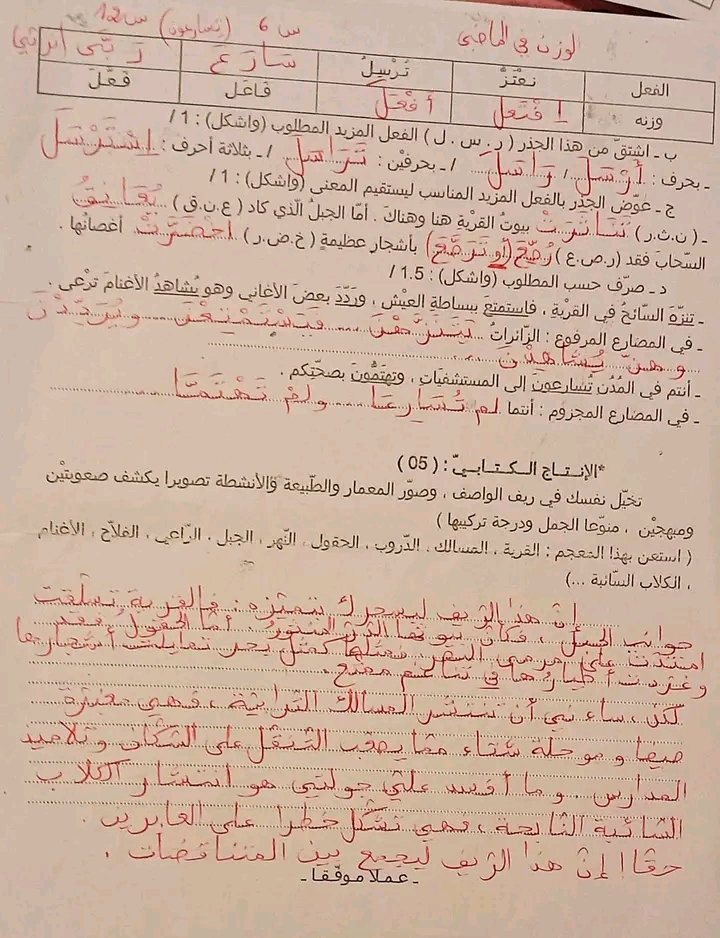 س 6 (تسارعون) س 12
لوزن في الماضي
الفعل نعْتَزُّ تُرْسِلُ سَارَعَ رَبَّى
وزنه اِفْتَعَلَ أَفْعَلَ فَاعَلَ فَعَّلَ
ب ـ اشتقّ من هذا الجذر ( ر . س . ل ) الفعل المزيد المطلوب (واشكل) : 1 /
ـ بحرف : أَرْسَلَ / رَاسَلَ / ـ بحرفيْن : تَرَاسَلَ / ـ بثلاثة أحرف : اِسْتَرْسَلَ
ج ـ عوّض الجذر بالفعل المزيد المناسب ليستقيم المعنى (واشكل) : 1 /
ـ ( ن.ث.ر ) تَنَاثَرَتْ بيوتُ القريةِ هنا وهناكَ . أمّا الجبلُ الّذي كاد ( ع.ن.ق ) يُعَانِقُ
السّحابَ فقد (ر.ص.ع ) رُصِّعَ (أو تَرَصَّعَ) بأشجار عظيمةٍ ( خ.ض.ر ) اِخْضَرَّتْ أغصانُها .
د ـ صرّف حسب المطلوب (واشكل) : 1.5 /
ـ تنزّهَ السّائحُ في القرْيةِ ، فاستمتعَ ببساطةِ العيْشِ ، وردّدَ بعضَ الأغاني وهو يُشاهدُ الأغنامَ ترْعى .
ـ في المضارع المرفوع : الزّائراتُ يَتَنَزَّهْنَ فَيَسْتَمْتِعْنَ ويُرَدِّدْنَ
وهنّ يُشَاهِدْنَ
ـ أنتم في المُدُن تُسارعون إلى المستشفياتِ ، وتهتمُّونَ بصحّتِكم .
ـ في المضارع المجزوم : أنتما لم تُسَارِعَا ولمْ تَهْتَمَّا
*الإنـتـاج الـكـتـابـيّ : ( 05 )
تخيّل نفسك في ريف الواصف ، وصوّر المعمار والطّبيعة والأنشطة تصويرا يكشف صعوبتيْن
ومبهجيْن ، منوّعا الجمل ودرجة تركيبها )
( استعن بهذا المعجم : القرية ، المسالك ، الدّروب ، الحقول ، النّهر ، الجبل ، الرّاعي ، الفلاّح ، الأغنام
، الكلاب السّائبة ...)
إنّ هذا الرّيف ليسحرك بتميّزه : فالقرية تسلّقت
جوانب الجبل ، فكأنّ بيوتها الدّرر المنثورُ . أمّا الحقول فقد
امتدّت على مرمى البصر فمثلها كمثل بحر تمايلت أشجارها
وغرّدت أطيارُها في تناغم ممتع .
لكن، ساءني أن تنتشر المسالك التّرابيّة ، فهي مغبرّة
صيفا وموحلة شتاء ممّا يصعّب التّنقّل على السّكّان وتلاميذ
المدارس . وما أفسد عليّ جولتي هو انتشار الكلاب
السّائبة النّابحة ، فهي تشكّل خطرا على العابرين .
حقّا ! إنّ هذا الرّيف ليجمع بين المتناقضات .
ـ عملا موفّقا ـ